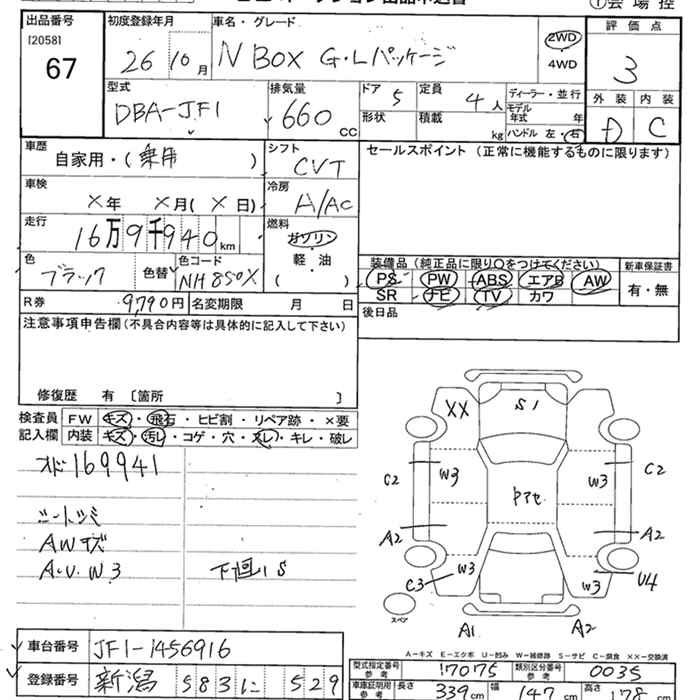 出品番号
[2058]
67
初度登録年月
26 10月
車名・グレード
N BOX G・Lパッケージ
2WD
4WD
評価点
3
外装 内装
D C
型式
DBA-JF1
排気量
660 CC
ドア 5
定員 4人
形状
積載 kg
ディーラー・並行
モデル年式 年
ハンドル 左・右
車歴
自家用・(乗用)
シフト
CVT
セールスポイント (正常に機能するものに限ります)
車検
×年 ×月(×日)
冷房
A/AC
走行
16万9千940km
燃料
ガソリン
軽・油
( )
色
ブラック
色替
色コード
NH850X
装備品 (純正品に限り○をつけてください)
PS PW ABS エアB AW
SR ナビ TV カワ
新車保証書
有・無
R券 9,790円
名変期限 月 日
後日品
注意事項申告欄(不具合内容等は具体的に記入して下さい)
修復歴 有 〔箇所 〕
検査員記入欄
FW キズ・飛石・ヒビ割・リペア跡・×要
内装 キズ・汚レ・コゲ・穴・スレ・キレ・破レ
オド 169941
シートシミ
AWキズ
A.U.W3
下廻りS
XX
S1
C2
W3
W3
C2
アアセ
A2
A2
W3
C3
W3
U4
スペア
A1
A2
A-キズ E-エクボ U-凹み W-補修跡 S-サビ C-腐食 ××-交換済
車台番号 JF1-1456916
登録番号 新潟 583 に 529
型式指定番号 参考 17075
類別区分番号 参考 0035
車庫証明用 参考 長さ 339cm 幅 147cm 高さ 178cm